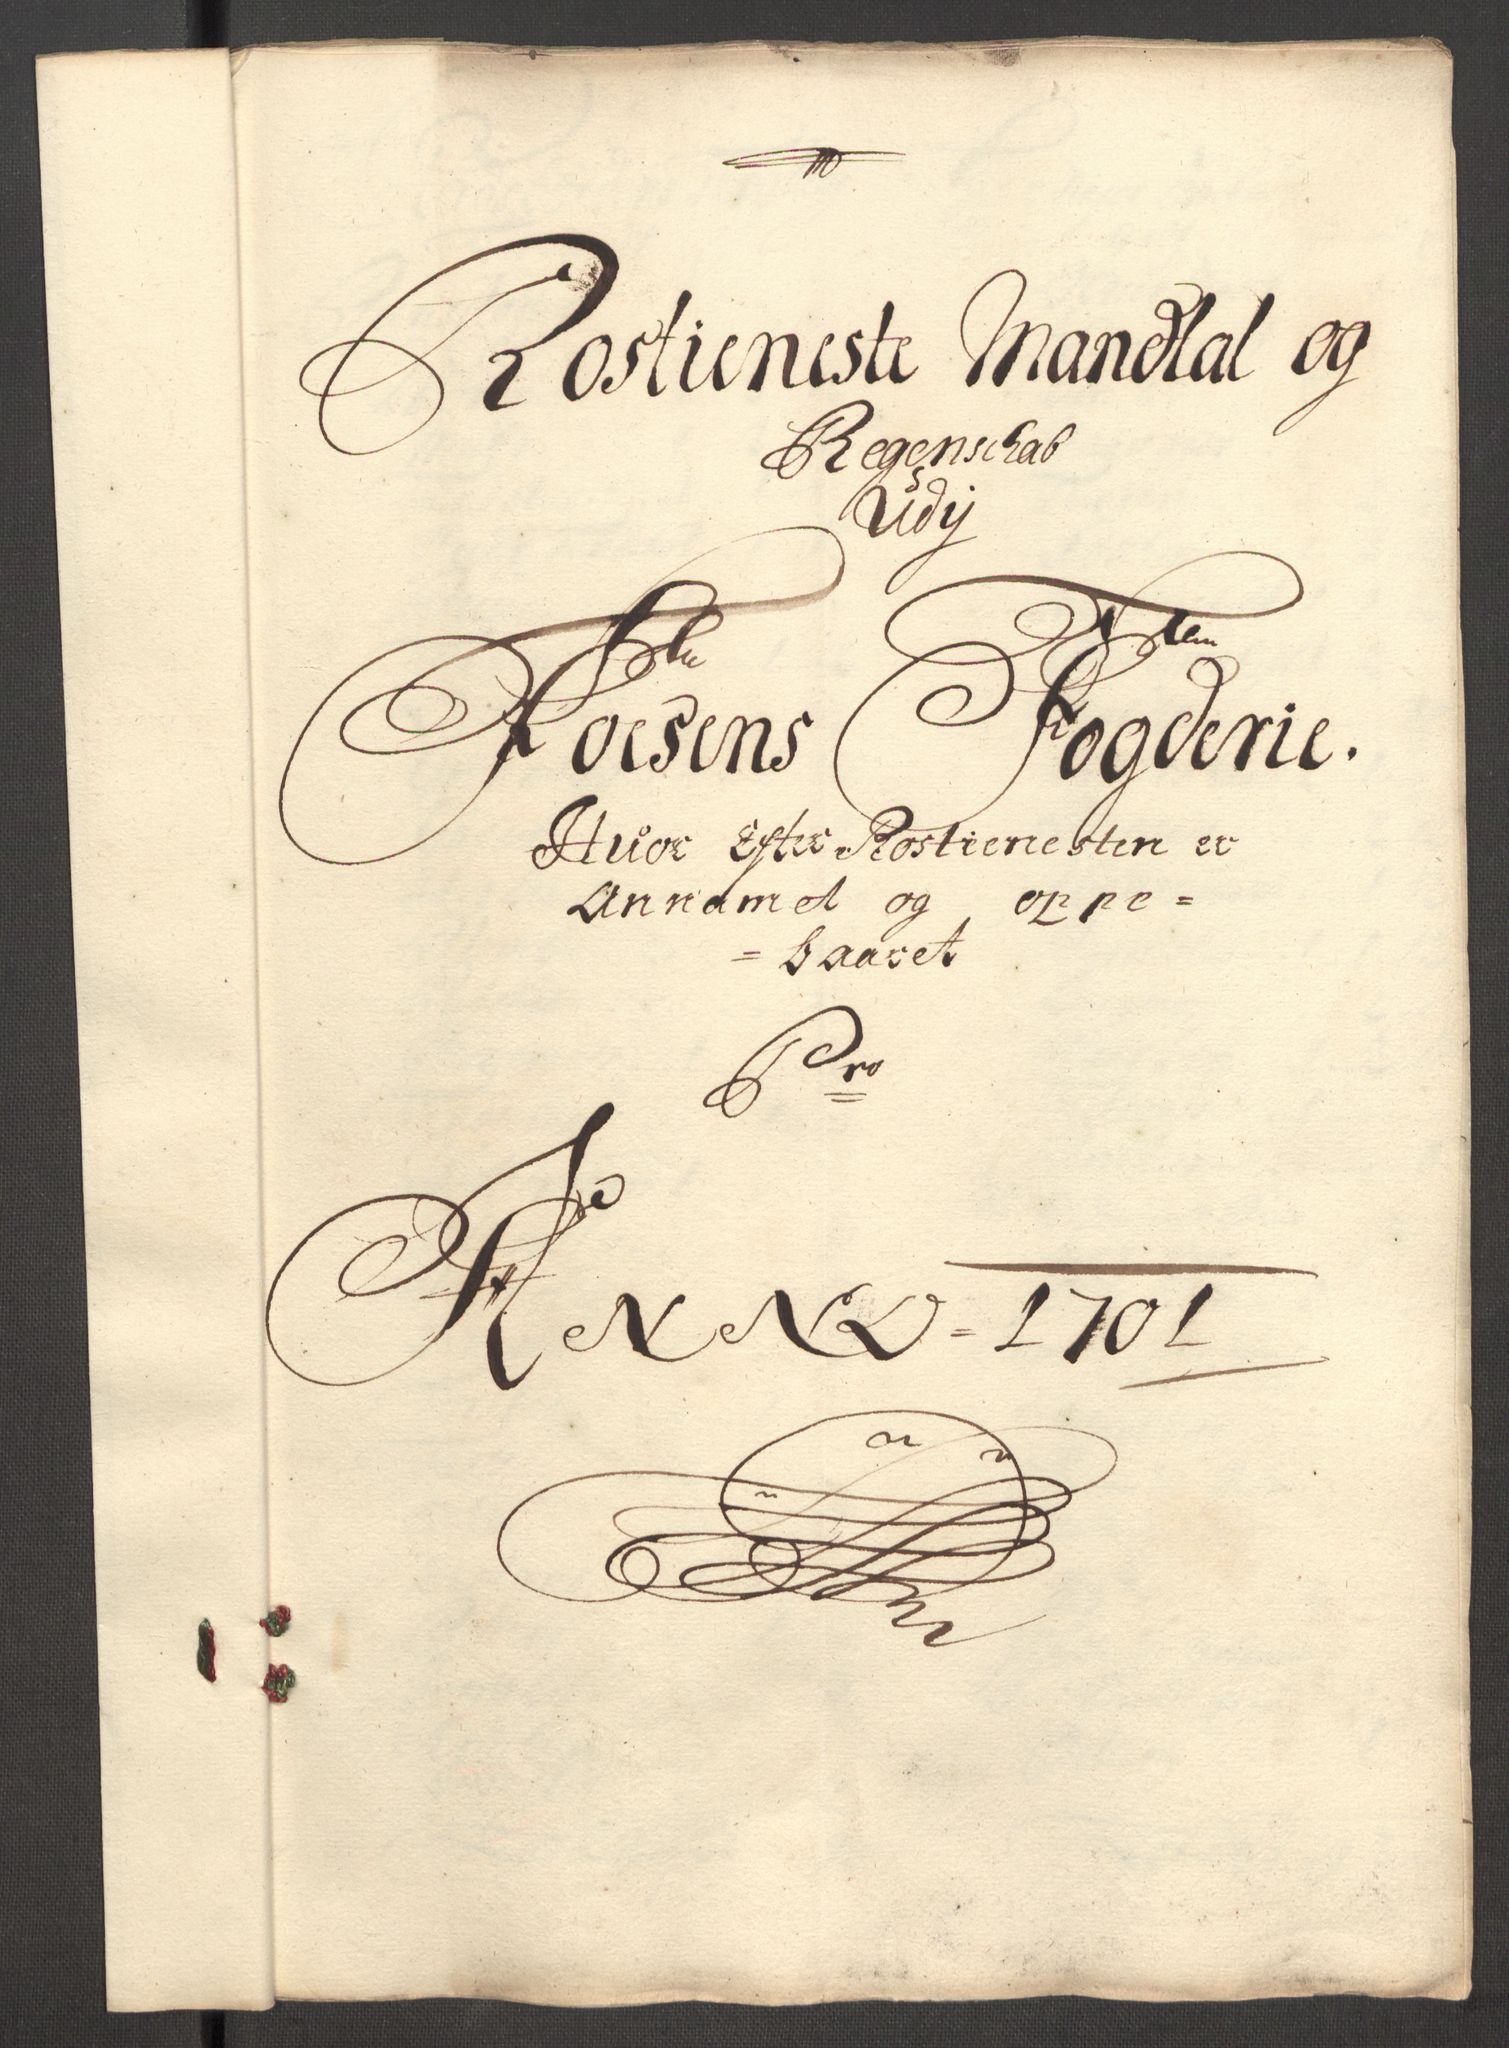 Rostieneste Mandtal og
Regenschab
Udij
Foesens Fogderie.
Huor Efter Rostienesten er
Annamet og oppe=
=baaret
Pro
ANNO=1701